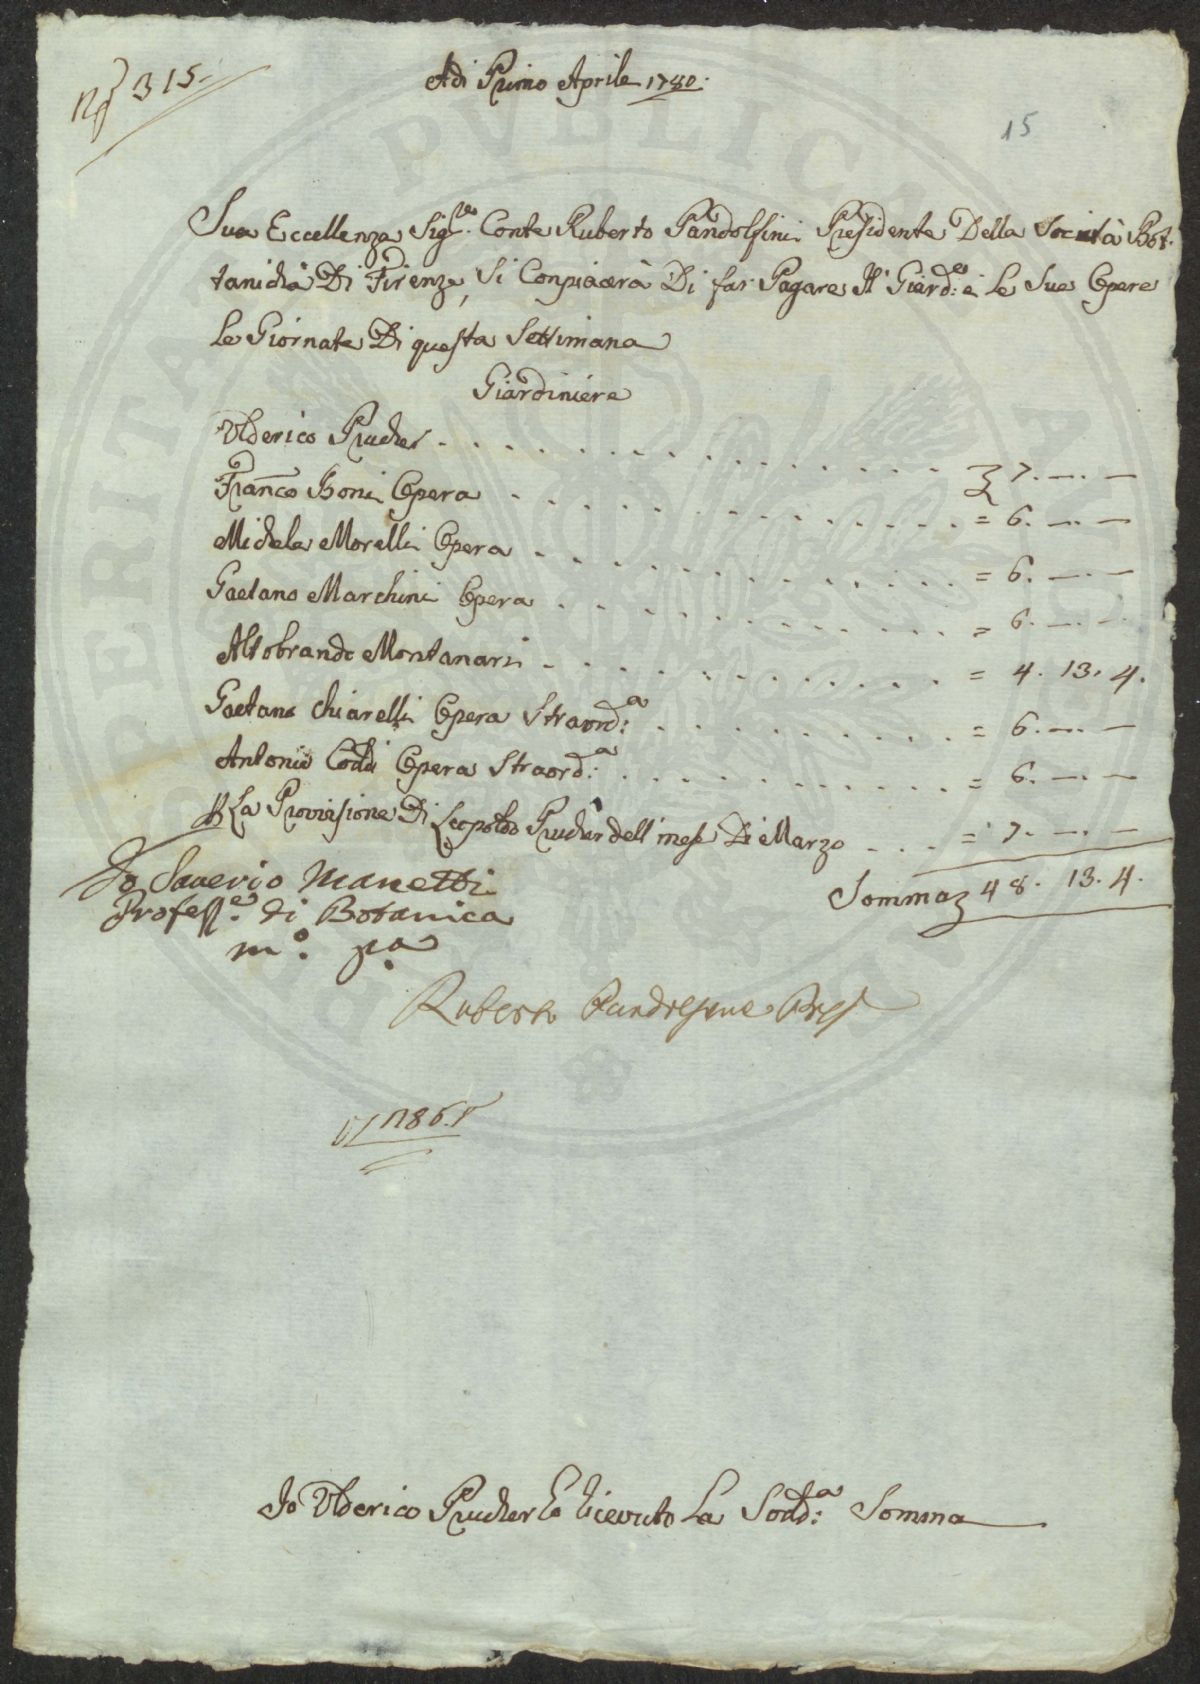 N° 315.
Adi Primo Aprile 1780.
15
Sua Eccellenza Sig.re Conte Ruberto Pandolfini Presidente Della Società Bot-
tanicha Di Firenze, Si Conpiacerà Di far Pagare Il Giard.e e Le Sue Opere
Le Giornate Di questa Settimana
Giardiniere
Ulderico Prucher . . . . . . . . . . . . . . . . . 7. —. —
Franco Boni Opera . . . . . . . . . . . . . . . . = 6. —. —
Michele Morelli Opera . . . . . . . . . . . . . . = 6. —. —
Gaetano Marchini Opera . . . . . . . . . . . . . = 6. —. —
Altobrando Montanari . . . . . . . . . . . . . . = 4. 13. 4.
Gaetano Chiarelli Opera Straord:a . . . . . . . . . = 6. —. —
Antonio Coddi Opera Straord:a . . . . . . . . . . = 6. —. —
La Provisione Di Leopoldo Prucher dell mese Di Marzo . . . = 7. —. —
Somma 48. 13. 4.
Io Saverio Manetti
Profess.e di Botanica
m.o p.a
Ruberto Pandolfini Pres
PVBLICA
VERITAT
Io Ulderico Prucher o ricevuto La Sodd:a Somma